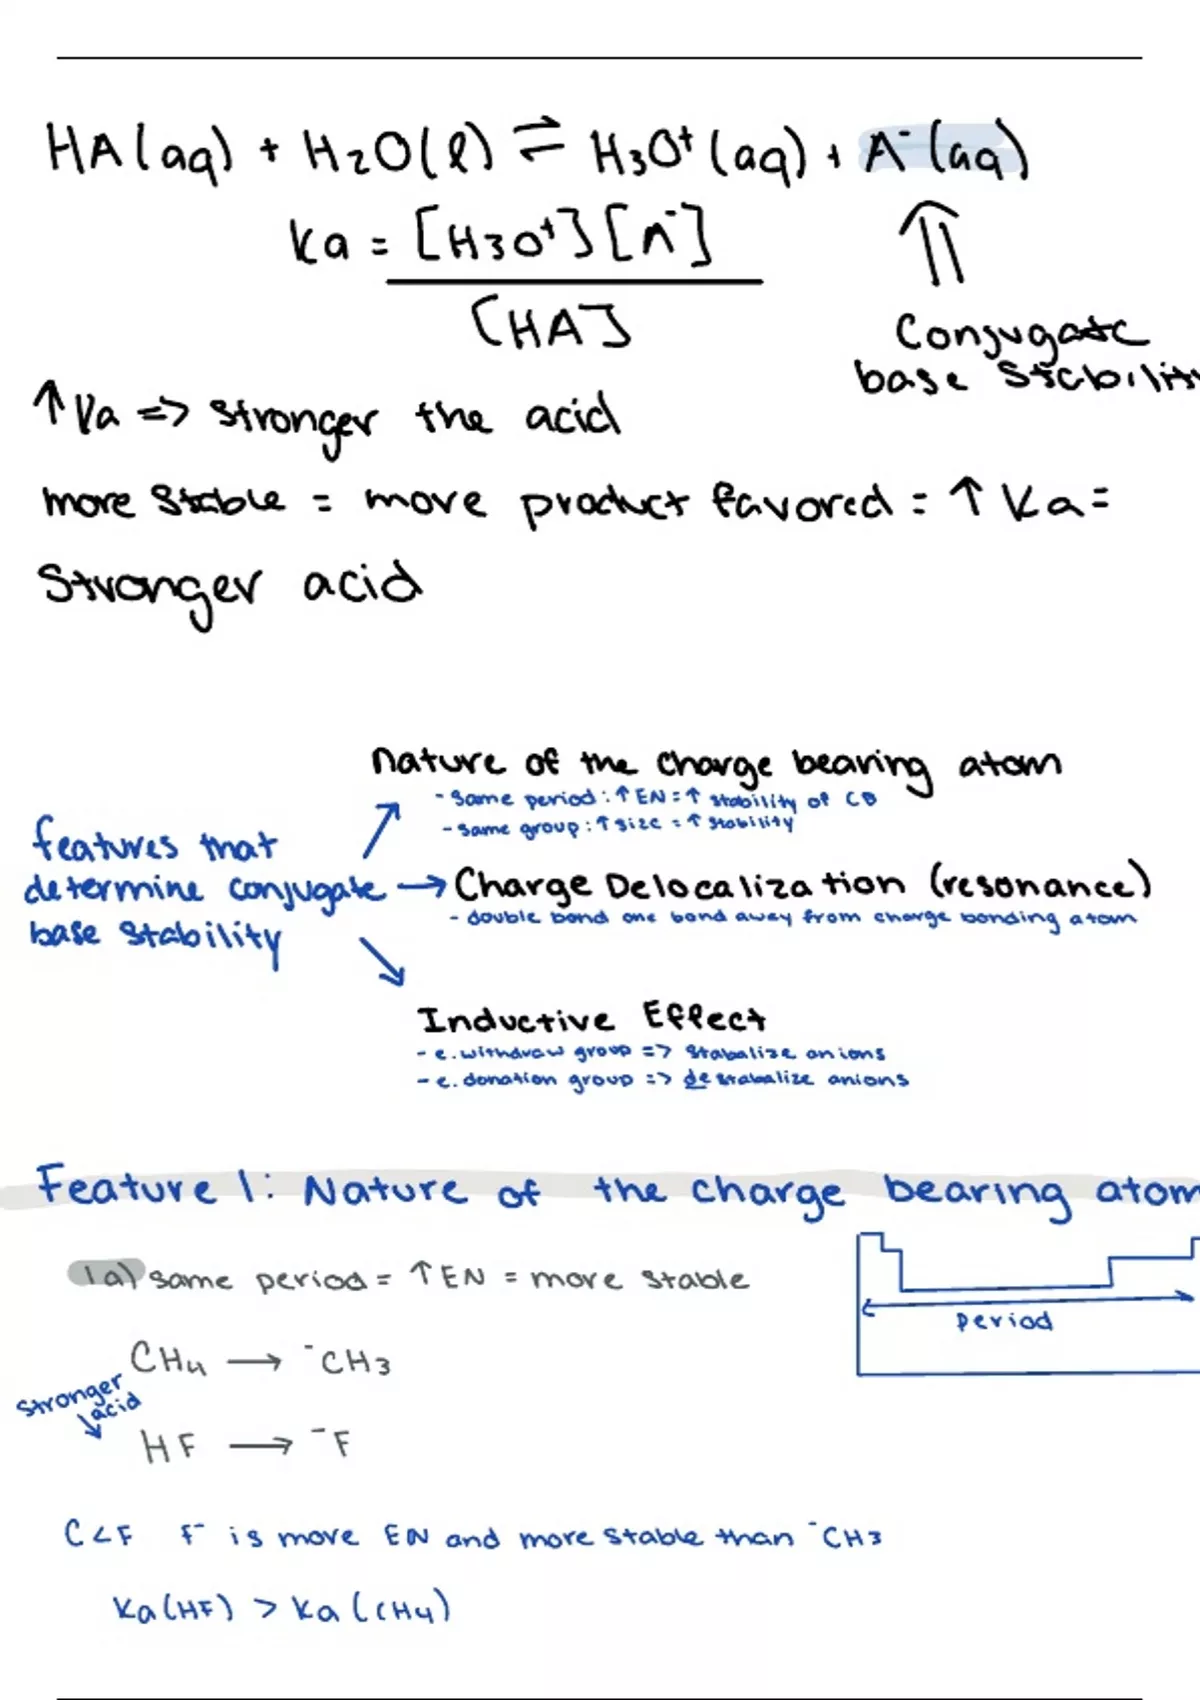 HA(aq) + H2O(l) ⇌ H3O⁺(aq) + A⁻(aq)
Ka = [H3O⁺][A⁻]
[HA]
Conjugate
base stability
↑ Ka => stronger the acid
more stable = more product favored = ↑ Ka =
Stronger acid
nature of the charge bearing atom
- same period: ↑ EN = ↑ stability of CB
- same group: ↑ size = ↑ stability
features that
determine conjugate
base stability
Charge Delocalization (resonance)
- double bond one bond away from charge bonding atom
Inductive Effect
- e. withdraw group => stabalize anions
- e. donation group => destabalize anions
Feature 1: Nature of the charge bearing atom
1a) same period = ↑ EN = more stable
period
CH4 → ⁻CH3
stronger
acid
HF → ⁻F
C < F F⁻ is more EN and more stable than ⁻CH3
Ka(HF) > Ka(CH4)